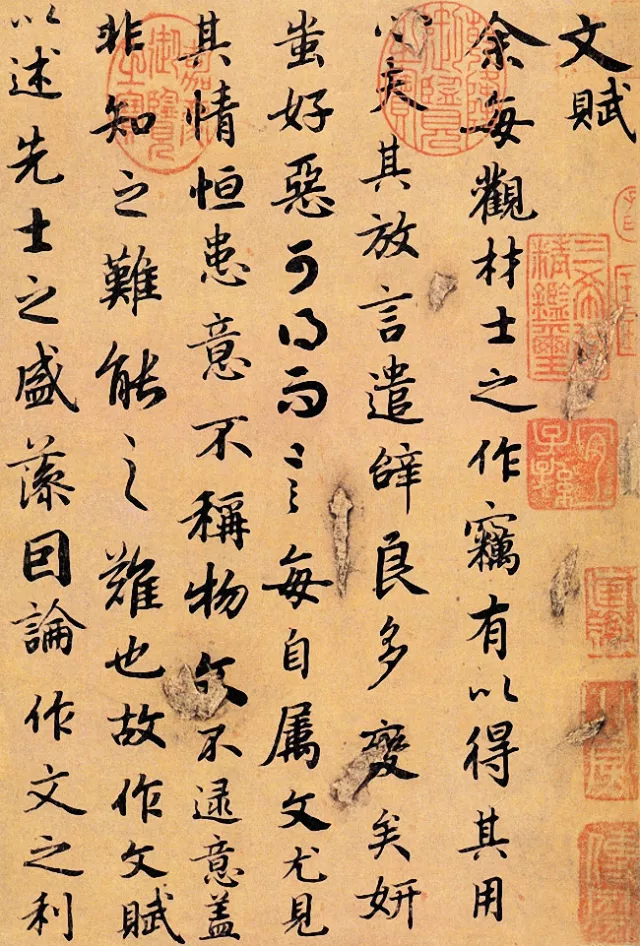 文賦
余每觀材士之作竊有以得其用
心夫其放言遣辭良多變矣妍
蚩好惡可得而言每自属文尤見
其情恒患意不稱物文不逮意盖
非知之難能之難也故作文賦
以述先士之盛藻因論作文之利
三希堂精鑑璽
宜子孫
嘉慶御覽之寶